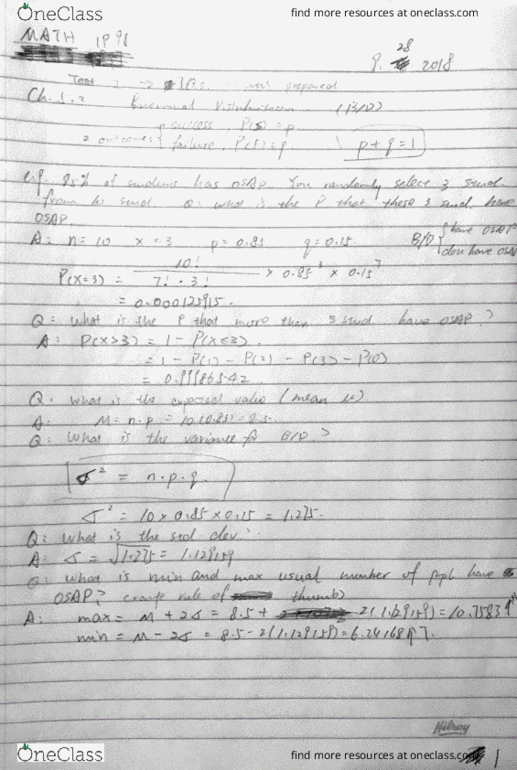 OneClass
find more resources at oneclass.com
MATH 1P98
9. 28 2018
Test
prepared
Ch.5.2 Binomial Distribution (B/D)
success, P(S) = p
2 outcomes failure, P(F) = q
p + q = 1
e.g. 85% of students has OSAP. You randomly select 3 stud.
from 10 stud. Q: what is the P that these 3 stud. have
OSAP
A: n = 10 x = 3 p = 0.85 q = 0.15
B/D { have OSAP
don't have OSAP
P(X=3) = 10! / 7! · 3! × 0.85³ × 0.15⁷
Q: What is the P that more than 3 stud have OSAP?
A: P(X>3) = 1 - P(X≤3)
= 1 - P(1) - P(2) - P(3) - P(0)
= 0.99986542
Q. What is the expected value (mean μ)
A: M = n·p = 10(0.85) = 8.5
Q: What is the variance for B/D?
σ² = n·p·q
σ² = 10 × 0.85 × 0.15 = 1.275
Q: What is the std dev.
A: σ = √1.275 = 1.129159
Q: What is min and max usual number of ppl have
OSAP? (range rule of thumb)
A: max = M + 2σ = 8.5 + 2(1.129159) =
min = M - 2σ = 8.5 - 2(1.129159) =
Hilroy
OneClass
find more resources at oneclass.com
1